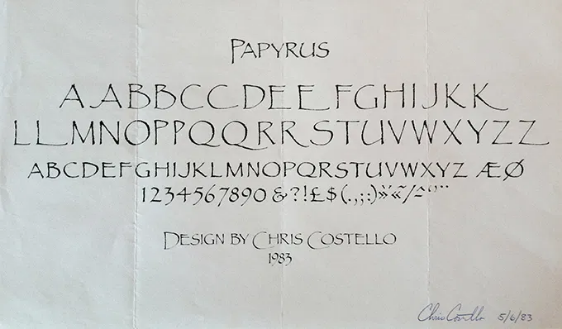 PAPYRUS
AABBCCDEEFGHIJKK
LLMNOPPQQRRSTUVWXYZZ
ABCDEFGHIJKLMNOPQRSTUVWXYZ ÆØ
1234567890 &?!£$(.,;:)»«/
DESIGN BY CHRIS COSTELLO
1983
Chris Costello 5/6/83